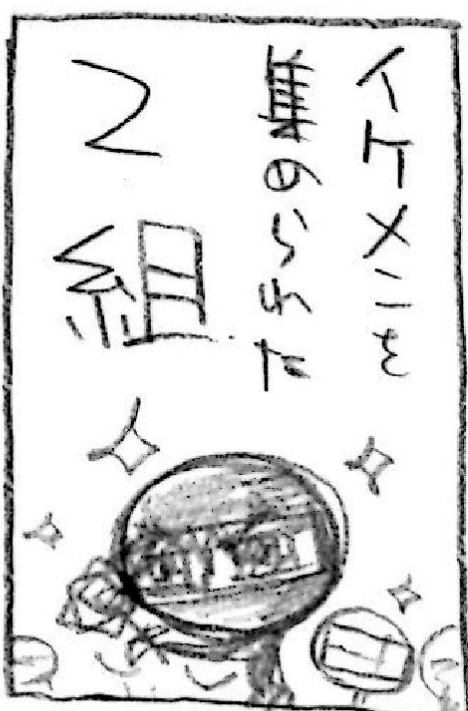 イケメンを
集められた
2組